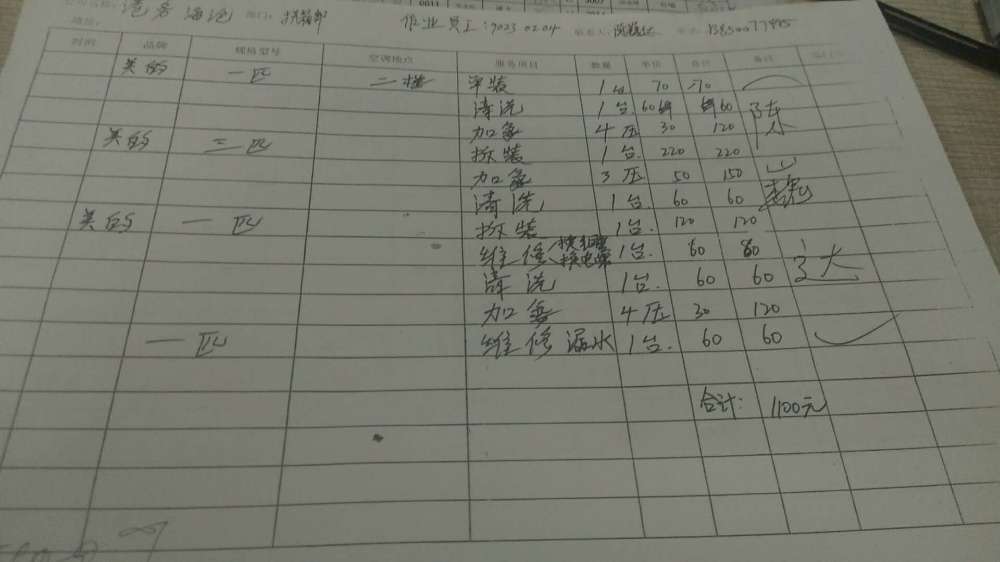 港务海通 部门：拆箱部 作业员工：9023 02.04 联系人：
时间 品牌 规格型号 空调地点 服务项目 数量 单价 合计 备注
美的 一匹 二楼 单装 1台 70 70
清洗 1台 60 60 陈
加氟 4压 30 120
美的 三匹 拆装 1台. 220 220
加氟 3压 50 150
清洗 1台. 60 60
美的 一匹 拆装 1台. 120 120
维修 1台. 60 60
清洗 1台. 60 60
加氟 4压 30 120
一匹 维修漏水 1台. 60 60
合计： 1100元